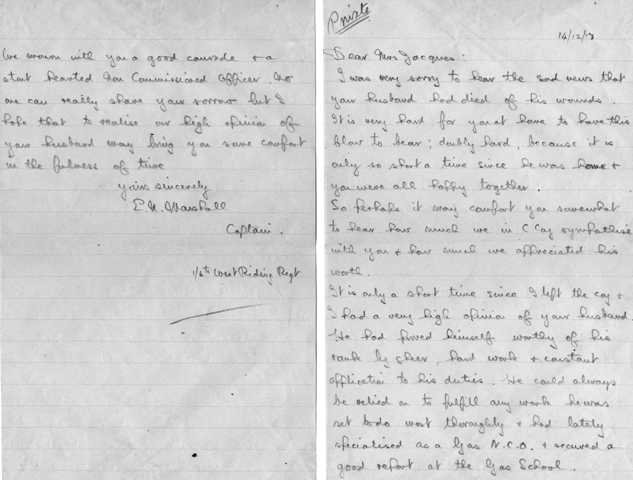 Private
14/12/17
Dear Mrs Jacques:
I was very sorry to hear the sad news that
your husband had died of his wounds.
It is very hard for you at home to have this
blow to bear; doubly hard, because it is
only so short a time since he was home &
you were all happy together.
So perhaps it may comfort you somewhat
to hear how much we in C Coy sympathise
with you & how much we appreciated his
worth.
It is only a short time since I left the coy &
I had a very high opinion of your husband.
He had proved himself worthy of his
rank by sheer, hard work & constant
application to his duties. He could always
be relied on to fulfill any work he was
set to do most thoroughly & had lately
specialised as a Gas N.C.O. & secured a
good report at the Gas School.
We mourn with you a good comrade & a
stout hearted Non Commissioned Officer. No
one can really share your sorrow but I
hope that to realise our high opinion of
your husband may bring you some comfort
in the fulness of time
Yours sincerely
E. N. Marshall
Captain.
1/6th West Riding Regt